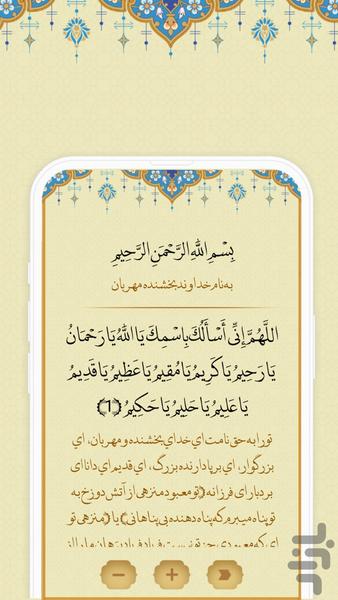 بِسْمِ اللَّهِ الرَّحْمَنِ الرَّحِيمِ
به نام خداوند بخشنده مهربان
اللَّهُمَّ إِنِّي أَسْأَلُكَ بِاسْمِكَ يَا اللَّهُ يَا رَحْمَانُ
يَا رَحِيمُ يَا كَرِيمُ يَا مُقِيمُ يَا عَظِيمُ يَا قَدِيمُ
يَا عَلِيمُ يَا حَلِيمُ يَا حَكِيمُ ﴿١﴾
تو را به حق نامت ای خدای بخشنده و مهربان، ای
بزرگوار، ای برپادارنده بزرگ، ای قدیم ای دانا ای
بردبار ای فرزانه تو معبود منزهی از آتش دوزخ به
تو پناه میبرم که پناه دهنده بی پناهانی یا منزهی تو
ای که معبودی جز تو نیست فریاد فریاد رهان ما را از